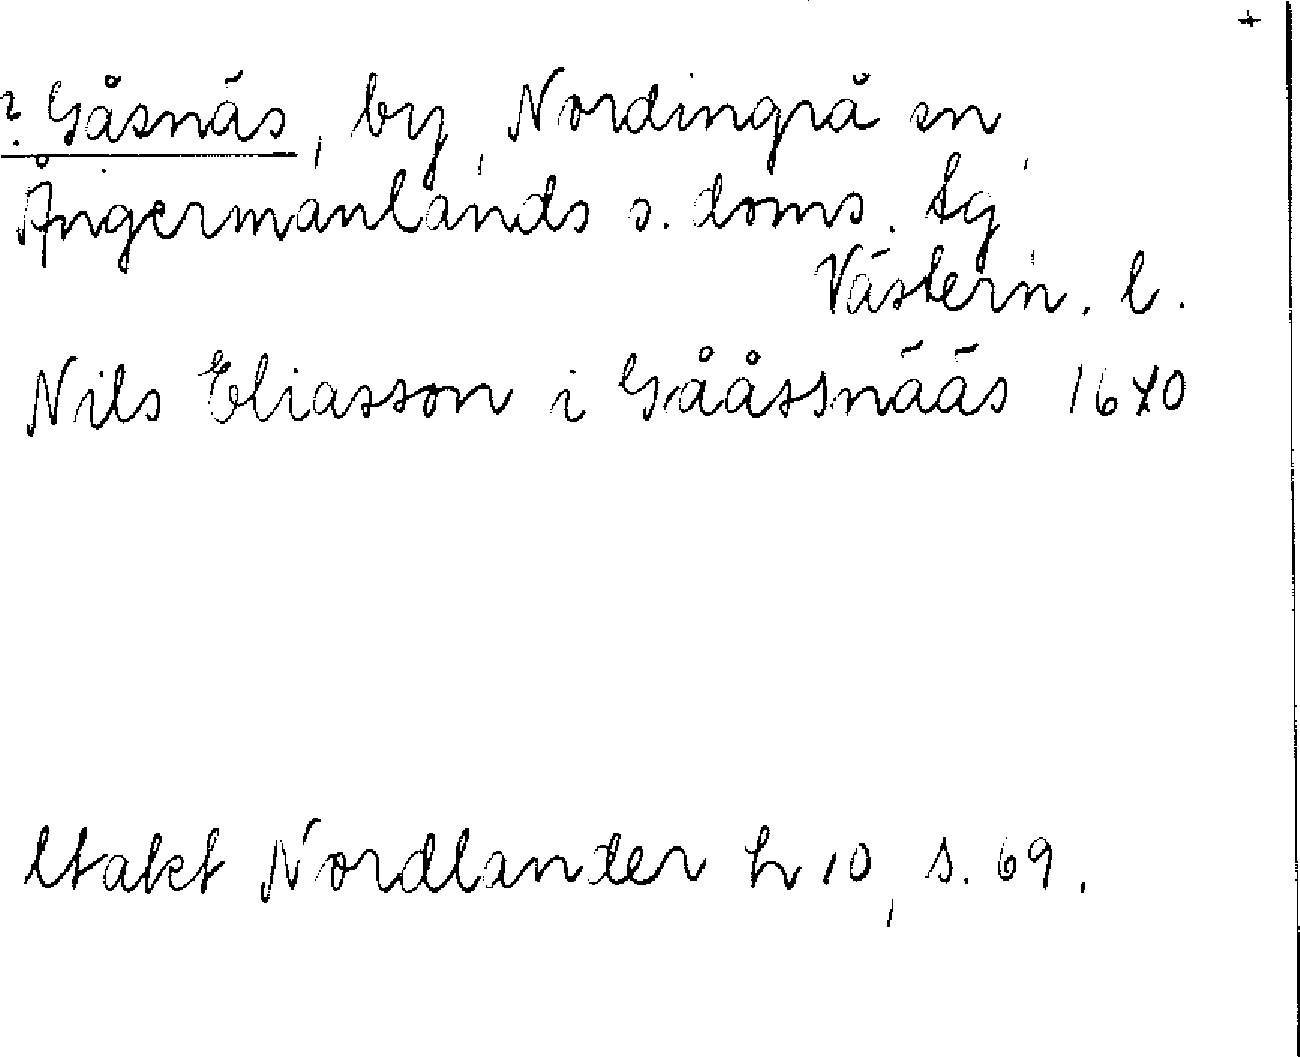 +
? Gåsnäs, by, Nordingrå sn,
Ångermanlands s. doms. tg,
Västern. l.
Nils Eliasson i Gååssnääs 1670
Utakt Nordlander h 10, s. 69.